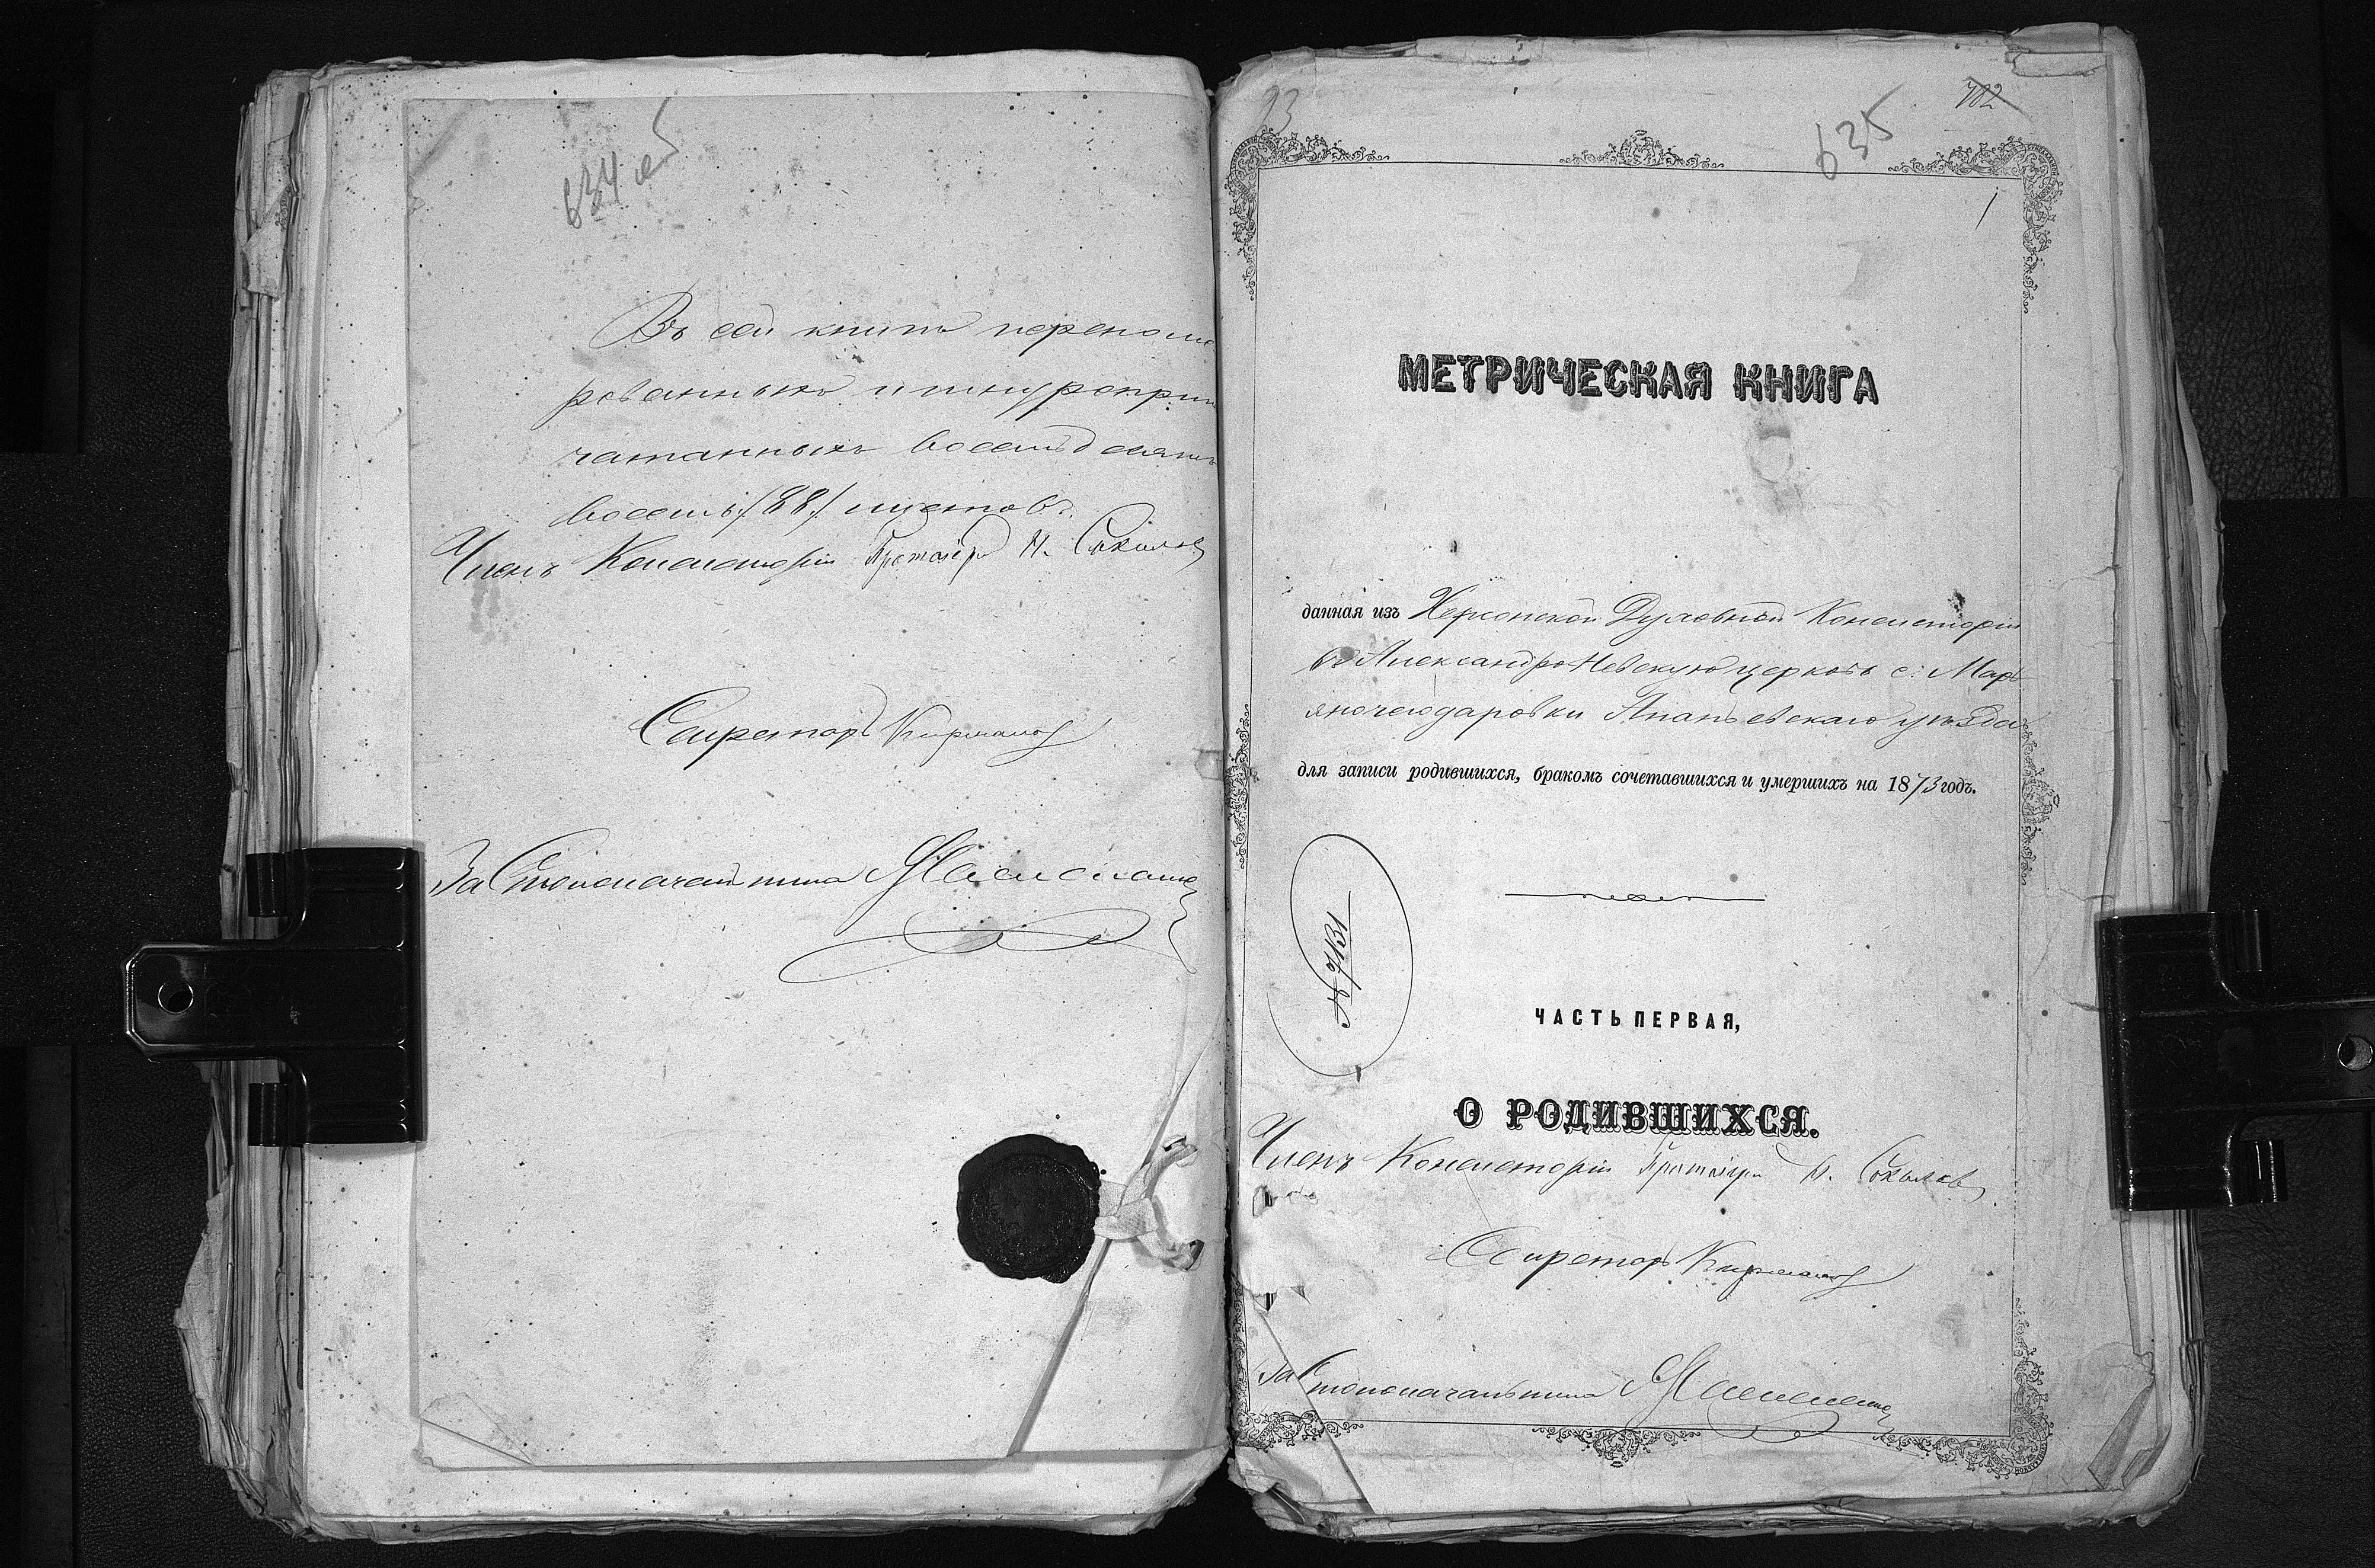 634 об
Въ сей книгѣ перенуме
рованныхъ и шнуропри
чатанныхъ восемьдесятъ
восемь /88/ листовъ.
Членъ Консисторіи Протоіерей Н. Соколовъ
Секретарь
За Столоначальника
93
635
702
1
МЕТРИЧЕСКАЯ КНИГА
данная изъ Херсонской Духовной Консисторіи
въ Александро Невскую церковь с. Марь
яночегодаровки Ананьевскаго уѣзда
для записи родившихся, бракомъ сочетавшихся и умершихъ на 1873 годъ.
№ 7131
ЧАСТЬ ПЕРВАЯ,
О РОДИВШИХСЯ.
Членъ Консисторіи Протоіерей Н. Соколовъ
Секретарь
За Столоначальника